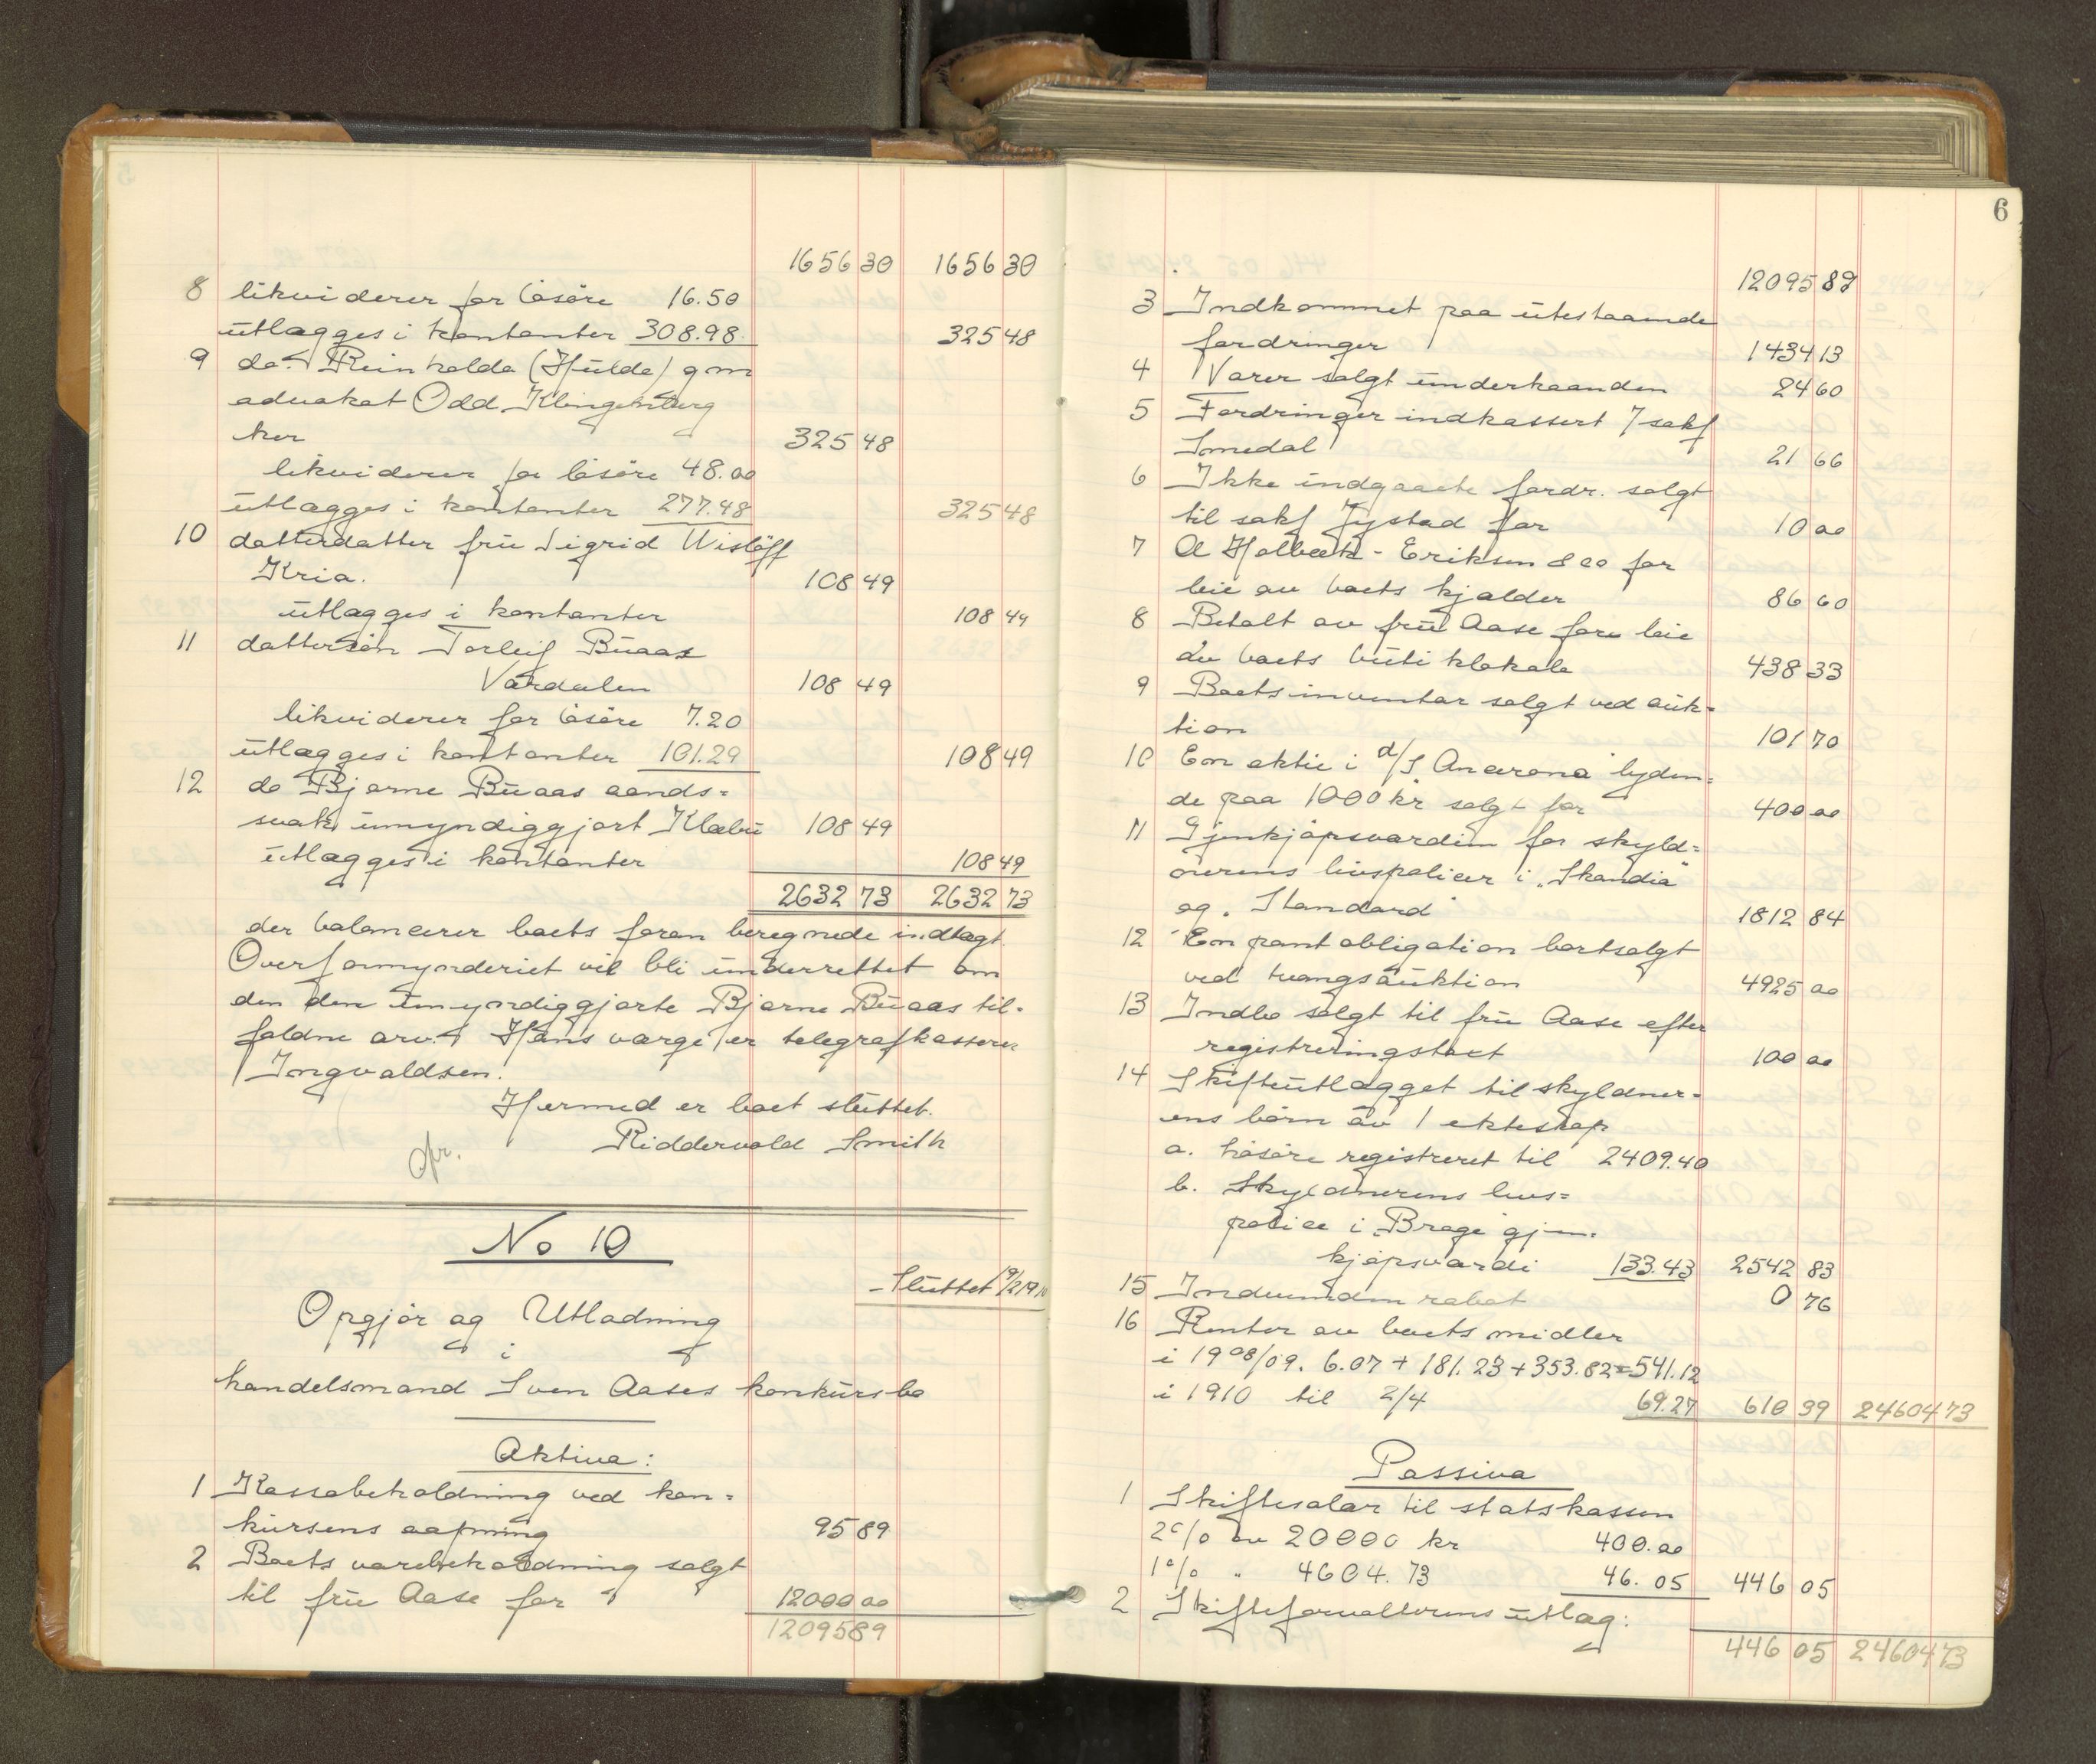 1656 30 1656 30
8 likviderer for løsøre 16.50
utlægges i kontanter 308.98 325 48
9 do. Reinholda (Hulda) gm
advokat Odd Klingenberg
her 325 48
likviderer for løsøre 48.00
utlægges i kontanter 277.48 325 48
10 datterdatter frū Sigrid Wisløff
Kria. 108 49
ūtlægges i kontanter 108 49
11 dattersøn Torleif Būaas
Værdalen 108 49
likviderer for løsøre 7.20
ūtlægges i kontanter 101.29 108 49
12 do Bjarne Būaas aands=
svak, ūmyndiggjort Klæbū 108 49
ūtlægges i kontanter 108 49
2632 73 2632 73
der balancerer boets foran beregnede indtægt
Overformynderiet vil bli ūnderrettet om
den den ūmyndiggjorte Bjarne Būaas til-
faldne arv. Hans værge er telegrafkasserer
Ingvaldsen.
Hermed er boet slūttet.
Riddervold Smith
opr.
No 10
Slūttet 19/2 1910
Opgjør og Utlodning
i
handelsmand Sven Aases konkūrsbo
Aktiva:
1 Kassabeholdning ved kon=
kūrsens aapning 95 89
2 Boets varebeholdning solgt
til frū Aase for 12000 00
12095 89
6
12095 89
3 Indkommet paa ūtestaaende
fordringer 1434 13
4 Varer solgt ūnderhaanden 24 60
5 Fordringer indkassert / sakf
Smedal 21 66
6 Ikke indgaaete fordr. solgt
til sakf Jystad for 10 00
7 A Holbæk-Eriksen & co for
leie av boets kjælder 86 60
8 Betalt av frū Aase for leie
av boets būtiklokale 438 33
9 Boets inventar solgt ved aūk=
tion 101 70
10 En aktie i A/S "Ancerona" lyden=
de paa 1000 kr solgt for 400 00
11 Gjenkjøpsværdien for skyld=
nerens livspolicer i "Skandia"
og "Standard" 1812 84
12 En pantobligation bortsolgt
ved tvangsaūktion 4925 00
13 Indbo solgt til frū Aase efter
registreringstaxt 100 00
14 Skifteūtlægget til skyldner=
ens børn av 1 ekteskap
a. løsøre registreret til 2409.40
b. Skyldnerens livs=
police i "Brage" gjen-
kjøpsværdi 133.43 2542 83
15 Indvunden rabat 0 76
16 Renter av boets midler
i 1908/09. 6.07 + 181.23 + 353.82 = 541.12
i 1910 til 2/4 69.27 610 39 24604 73
Passiva
1 Skiftesalær til statskassen
2% av 20000 kr 400.00
1% " 4604.73 46.05 446 05
2 Skifteforvalterens ūtlæg:
446 05 24604 73